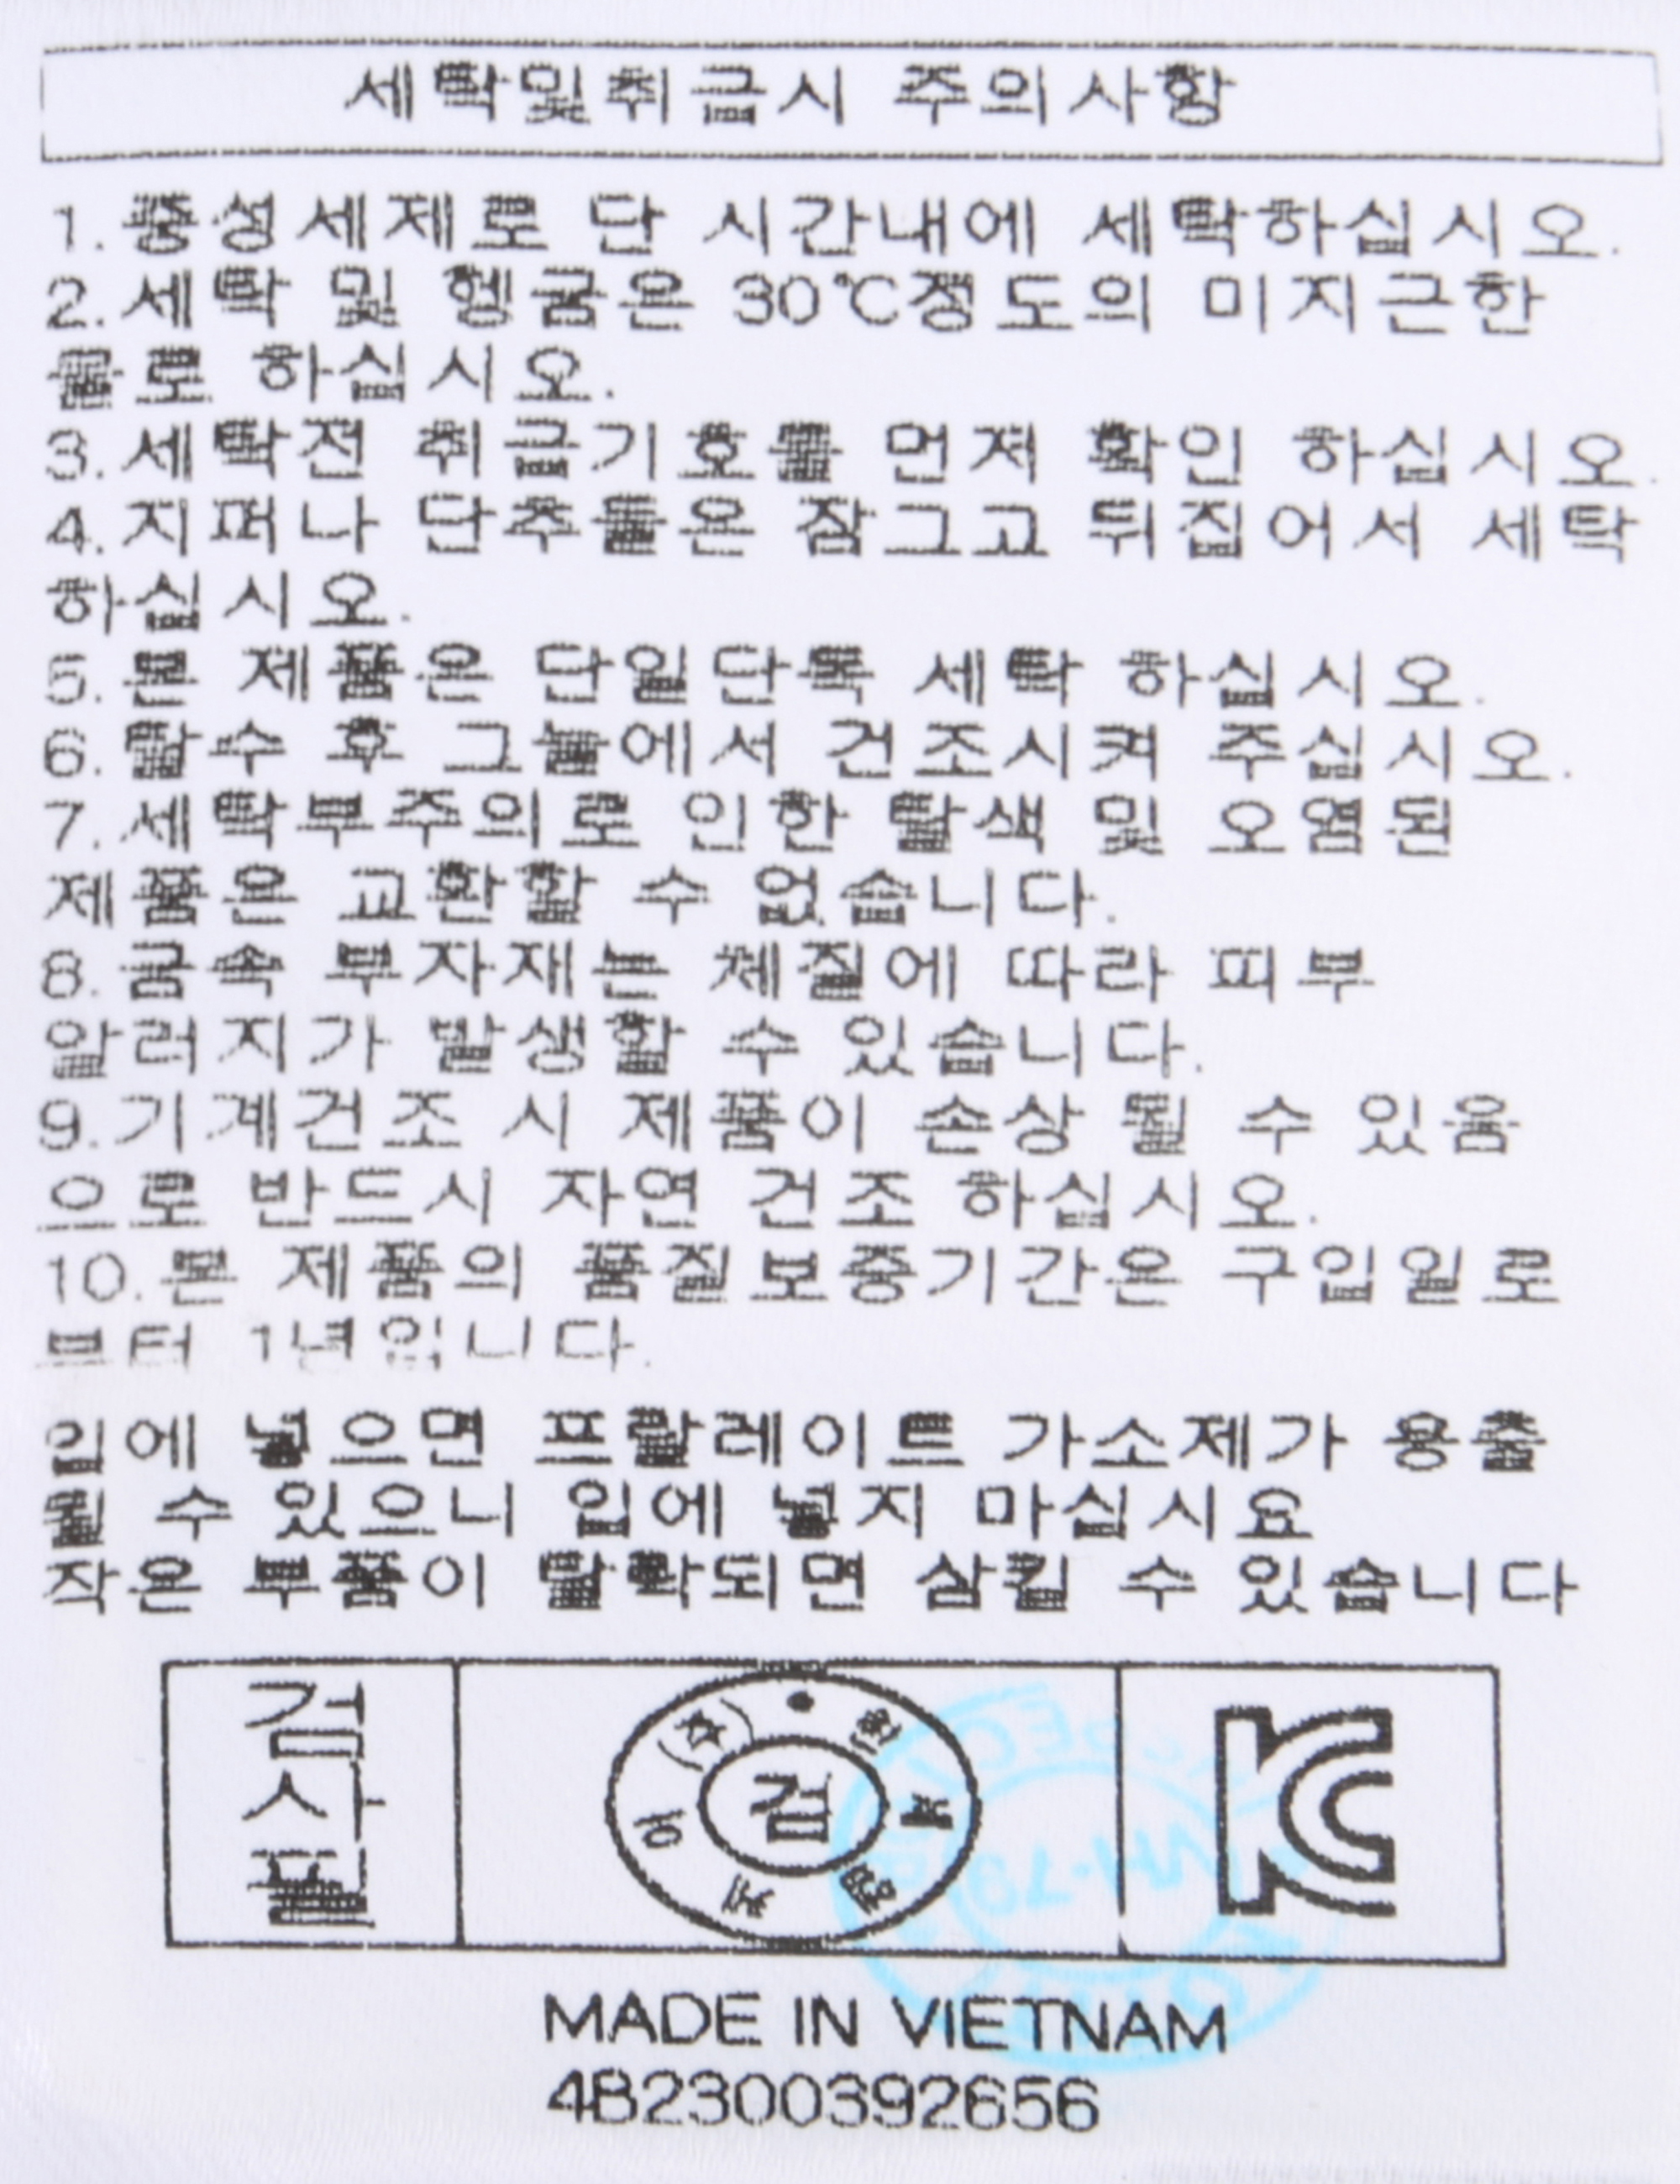 세탁및취급시 주의사항
1. 중성세제로 단 시간내에 세탁하십시오.
2. 세탁 및 헹굼은 30℃정도의 미지근한
물로 하십시오.
3. 세탁전 취급기호를 먼저 확인 하십시오.
4. 지퍼나 단추들은 잠그고 뒤집어서 세탁
하십시오.
5. 본 제품은 단일단독 세탁 하십시오.
6. 탈수 후 그늘에서 건조시켜 주십시오.
7. 세탁부주의로 인한 탈색 및 오염된
제품은 교환할 수 없습니다.
8. 금속 부자재는 체질에 따라 피부
알러지가 발생할 수 있습니다.
9. 기계건조 시 제품이 손상 될 수 있음
으로 반드시 자연 건조 하십시오.
10. 본 제품의 품질보증기간은 구입일로
부터 1년입니다.
입에 넣으면 프탈레이트 가소제가 용출
될 수 있으니 입에 넣지 마십시요
작은 부품이 탈락되면 삼킬 수 있습니다
검사필
검
KC
MADE IN VIETNAM
4B2300392656